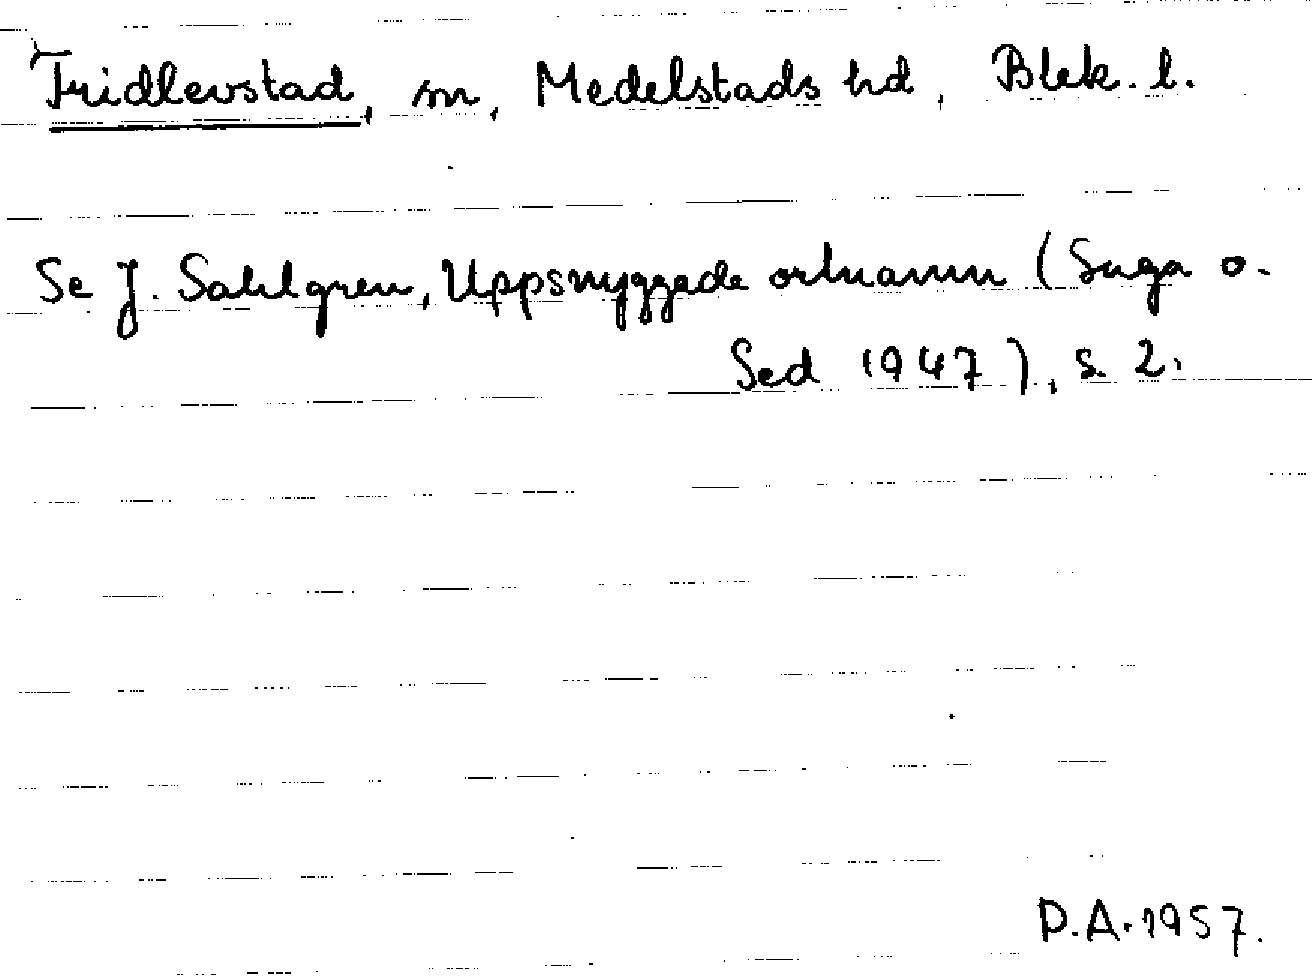 Fridlevstad, sn, Medelstads hd, Blek. l.
Se J. Sahlgren, Uppsnyggade ortnamn (Saga o.
Sed 1947), s. 2.
D.A. 1957.